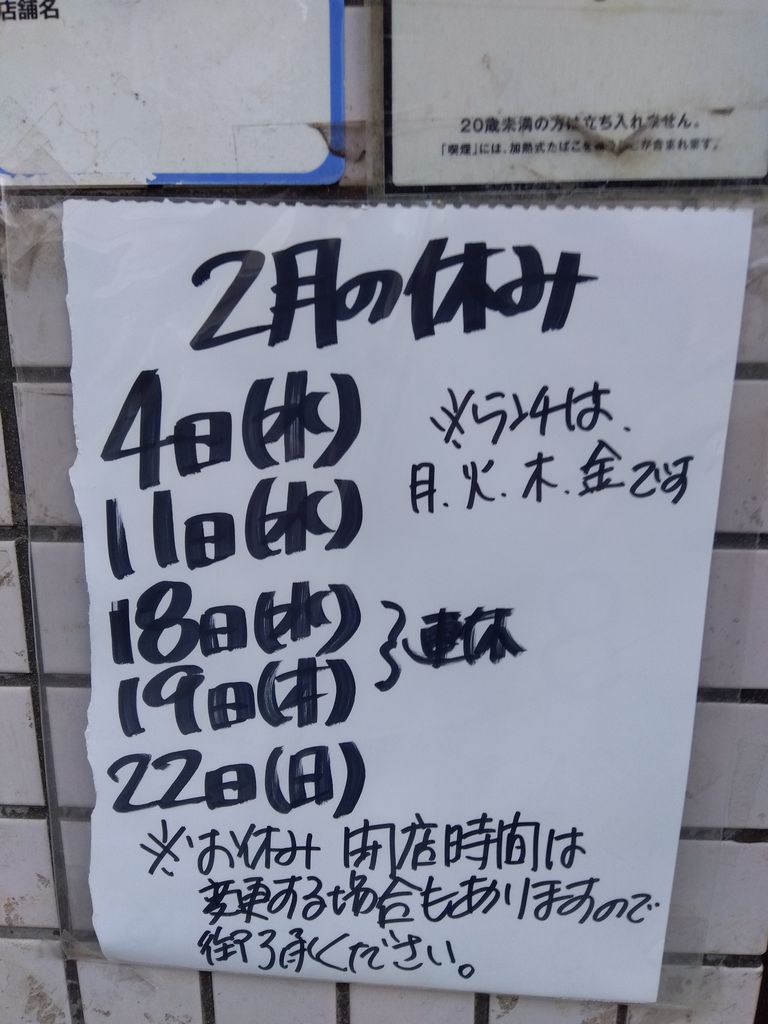 店舗名
20歳未満の方は立ち入れません。
「喫煙」には、加熱式たばこを吸うことが含まれます。
2月の休み
4日(水)
※ランチは、
月、火、木、金です
11日(水)
18日(水)
19日(木)
連休
22日(日)
※お休み 開店時間は
変更する場合もありますので
御了承ください。